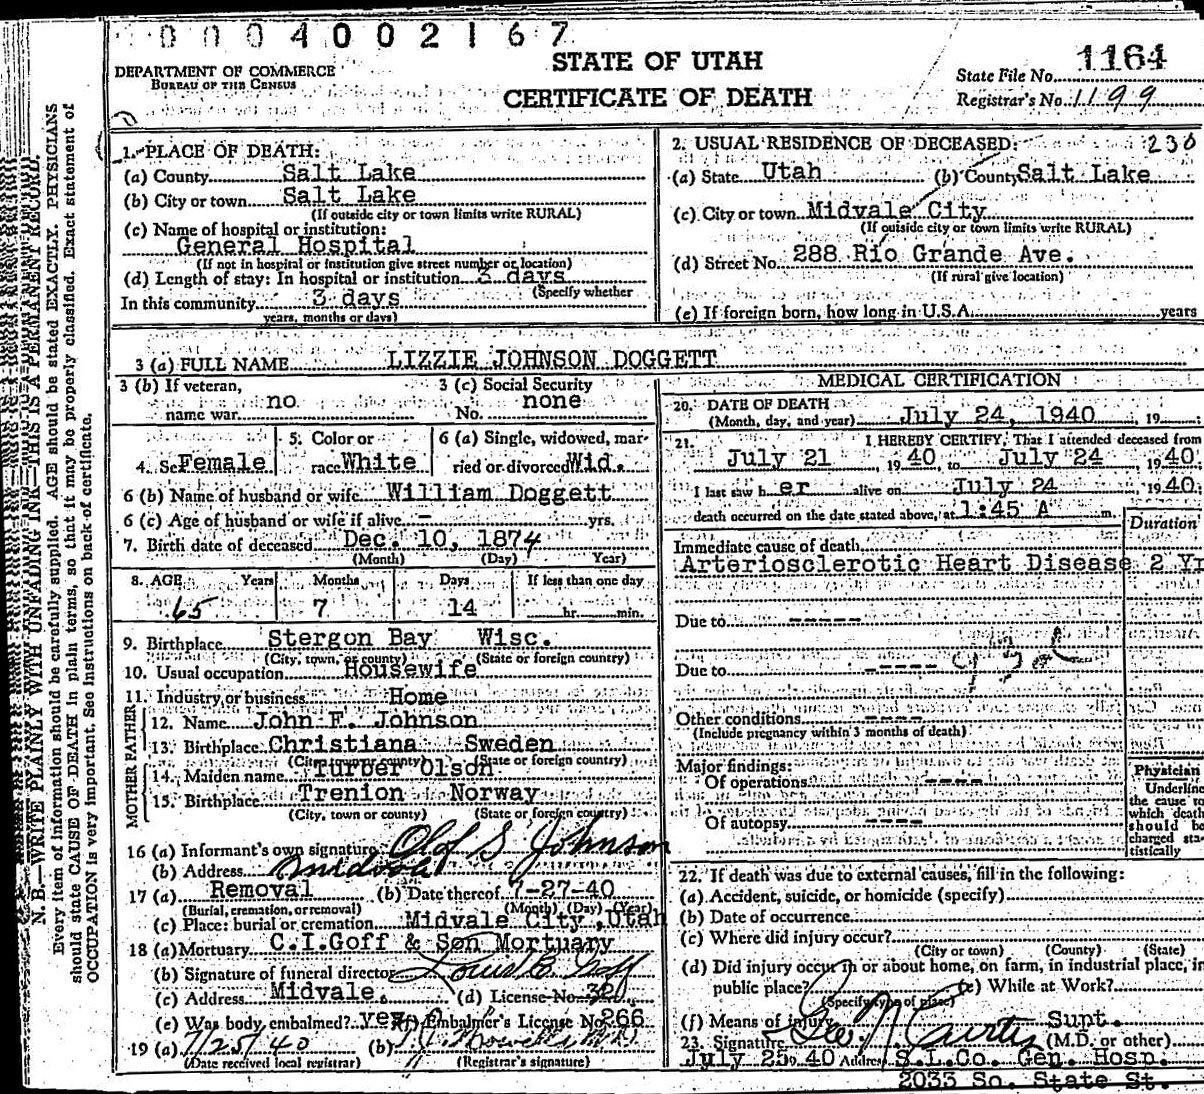 0004002167
DEPARTMENT OF COMMERCE
BUREAU OF THE CENSUS
STATE OF UTAH
CERTIFICATE OF DEATH
State File No. 1164
Registrar's No. 1199
N. B.—WRITE PLAINLY WITH UNFADING INK—THIS IS A PERMANENT RECORD.
Every item of information should be carefully supplied. AGE should be stated EXACTLY. PHYSICIANS
should state CAUSE OF DEATH in plain terms, so that it may be properly classified. Exact statement of
OCCUPATION is very important. See instructions on back of certificate.
1. PLACE OF DEATH:
(a) County Salt Lake
(b) City or town Salt Lake
(If outside city or town limits write RURAL)
(c) Name of hospital or institution:
General Hospital
(If not in hospital or institution give street number or location)
(d) Length of stay: In hospital or institution 3 days
(Specify whether
In this community 3 days
years, months or days)
2. USUAL RESIDENCE OF DECEASED: 230
(a) State Utah (b) County Salt Lake
(c) City or town Midvale City
(If outside city or town limits write RURAL)
(d) Street No. 288 Rio Grande Ave.
(If rural give location)
(e) If foreign born, how long in U.S.A. years
3 (a) FULL NAME LIZZIE JOHNSON DOGGETT
3 (b) If veteran,
name war no
3 (c) Social Security
No. none
4. Sex Female
5. Color or
race White
6 (a) Single, widowed, mar-
ried or divorced Wid.
6 (b) Name of husband or wife William Doggett
6 (c) Age of husband or wife if alive - yrs.
7. Birth date of deceased Dec. 10, 1874
(Month) (Day) Year)
8. AGE Years Months Days If less than one day
65 7 14 hr. min.
9. Birthplace Stergon Bay Wisc.
(City, town, or county) (State or foreign country)
10. Usual occupation Housewife
11. Industry or business Home
FATHER
12. Name John F. Johnson
13. Birthplace Christiana Sweden
(City, town or county) (State or foreign country)
MOTHER
14. Maiden name Turber Olson
15. Birthplace Trenion Norway
(City, town or county) (State or foreign country)
16 (a) Informant's own signature Olof S Johnson
(b) Address Midvale
17 (a) Removal (b) Date thereof 7-27-40
(Burial, cremation, or removal) (Month) (Day) (Year)
(c) Place: burial or cremation Midvale City, Utah
18 (a) Mortuary C.I.Goff & Son Mortuary
(b) Signature of funeral director Louis E. Goff
(c) Address Midvale. (d) License No.
(e) Was body embalmed? yes (f) Embalmer's License No. 266
19 (a) 7/25/40 (b)
(Date received local registrar) (Registrar's signature)
MEDICAL CERTIFICATION
20. DATE OF DEATH
(Month, day, and year) July 24, 1940, 19
21. I HEREBY CERTIFY, That I attended deceased from
July 21, 1940 to July 24, 1940
I last saw her alive on July 24 1940
death occurred on the date stated above, at 1:45 A m.
Duration
Immediate cause of death
Arteriosclerotic Heart Disease 2 Yr
Due to -----
Due to -----
Other conditions ----
(Include pregnancy within 3 months of death)
Major findings:
Of operations ----
Of autopsy ----
Physician
Underline
the cause to
which death
should be
charged sta-
tistically
22. If death was due to external causes, fill in the following:
(a) Accident, suicide, or homicide (specify)
(b) Date of occurrence
(c) Where did injury occur?
(City or town) (County) (State)
(d) Did injury occur in or about home, on farm, in industrial place, in
public place? (e) While at Work?
(Specify type of place)
(f) Means of injury
23. Signature Geo N Curtis Supt.
(M.D. or other)
July 25 1940 Address S.L.Co. Gen. Hosp.
2033 So. State St.